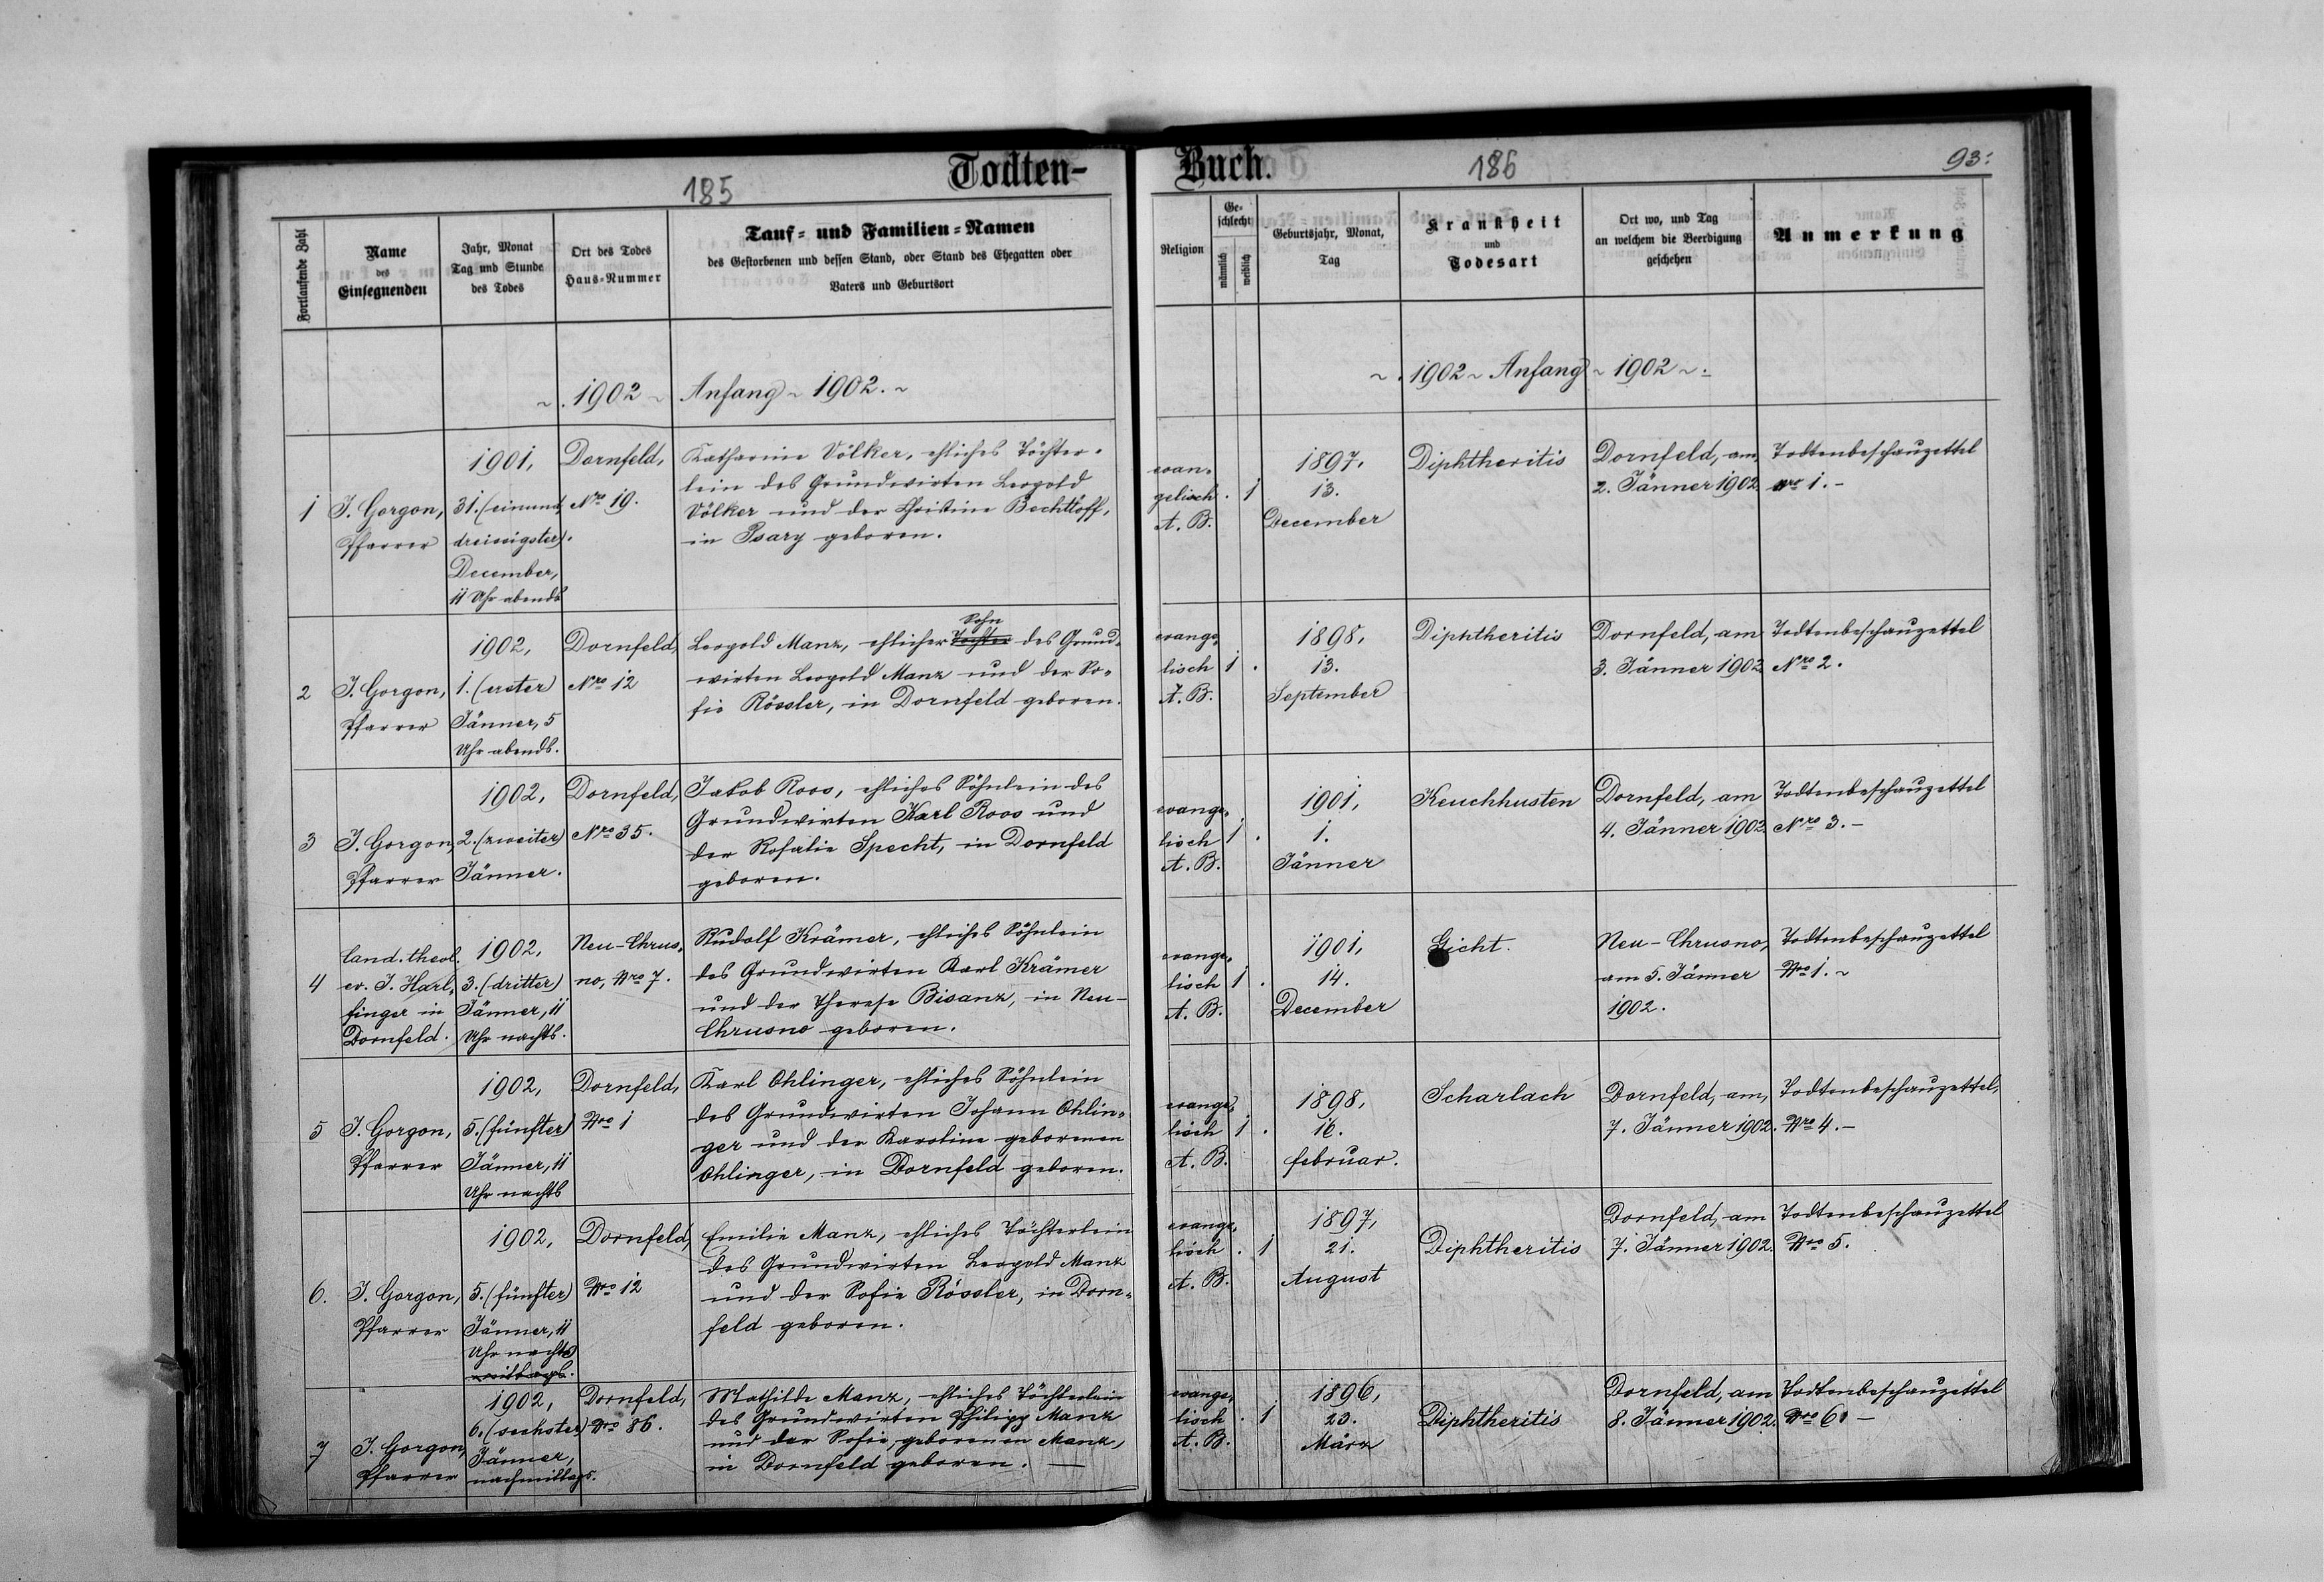 Todten-
185
Fortlaufende Zahl
Name
des
Einsegnenden
Jahr, Monat
Tag und Stunde
des Todes
Ort des Todes
Haus-Nummer
Tauf- und Familien-Namen
des Gestorbenen und dessen Stand, oder Stand des Ehegatten oder
Vaters und Geburtsort
~. 1902 ~ Anfang ~ 1902. ~
1
J. Gorgon,
Pfarrer
1901,
31. (einund
dreissigster).
December,
11 Uhr abends
Dornfeld,
Nro 19.
Katharine Völker, ehliches Töchter-
lein des Grundwirten Leopold
Völker und der Christine Bechtloff,
in Psary geboren.
2
J. Gorgon,
Pfarrer
1902,
1. (erster)
Jänner, 5
Uhr abends.
Dornfeld,
Nro 12
Sohn
Leopold Manz, ehlicher Tochter des Grund-
wirten Leopold Manz und der So-
fie Rössler, in Dornfeld geboren.
3
J. Gorgon,
Pfarrer
1902,
2. (zweiter)
Jänner.
Dornfeld,
Nro 35.
Jakob Roos, ehliches Söhnlein des
Grundwirten Karl Roos und
der Rosalie Specht, in Dornfeld
geboren.
4
Cand. theol.
ev. J. Harl-
finger in
Dornfeld.
1902,
3. (dritter)
Jänner, 11
Uhr nachts.
Neu-Chrus-
no, Nro 7.
Rudolf Krämer, ehliches Söhnlein
des Grundwirten Karl Krämer
und der Therese Bisanz, in Neu-
Chrusno geboren.
5
J. Gorgon,
Pfarrer
1902,
5. (fünfter)
Jänner, 11
Uhr nachts
Dornfeld,
Nro 1
Karl Ohlinger, ehliches Söhnlein
des Grundwirten Johann Ohlin-
ger und der Karoline geborenen
Ohlinger, in Dornfeld geboren.
6.
J. Gorgon,
Pfarrer
1902,
5. (fünfter)
Jänner, 11
Uhr nachts
Dornfeld,
Nro 12
Emilie Manz, ehliches Töchterlein
des Grundwirten Leopold Manz
und der Sofie Rössler, in Dorn-
feld geboren.
7
J. Gorgon,
Pfarrer
1902,
6. (sechster)
Jänner,
nachmittags.
Dornfeld,
Nro 86.
Mathilde Manz, ehliches Töchterlein
des Grundwirten Philipp Manz
und der Sofie, geborenen Manz,
in Dornfeld geboren. —
Buch.
186
93.
Religion
Ge-
schlecht
männlich
weiblich
Geburtsjahr, Monat,
Tag
Krankheit
und
Todesart
Ort wo, und Tag
an welchem die Beerdigung
geschehen
Anmerkung
~. 1902 ~ Anfang ~ 1902 ~.
evan-
gelisch
A. B.
. 1
1897,
13.
December
Diphtheritis
Dornfeld, am
2. Jänner 1902
Todtenbeschauzettel
Nro 1. -
evange-
lisch
A. B.
1 .
1898,
13.
September
Diphtheritis
Dornfeld, am
3. Jänner 1902
Todtenbeschauzettel
Nro 2.
evange-
lisch
A. B.
1 .
1901,
1.
Jänner
Keuchhusten
Dornfeld, am
4. Jänner 1902
Todtenbeschauzettel
Nro 3. -
evange-
lisch
A. B.
1 .
1901,
14.
December
Gicht.
Neu-Chrusno,
am 5. Jänner
1902.
Todtenbeschauzettel
Nro 1. ~
evange-
lisch
A. B.
1 .
1898,
februar.
Scharlach
Dornfeld, am,
7. Jänner 1902.
Todtenbeschauzettel,
Nro 4. -
evange-
lisch
A. B.
. 1
1897,
21.
August
Diphtheritis
Dornfeld, am
7. Jänner 1902.
Todtenbeschauzettel
Nro 5.
evange-
lisch
A. B.
. 1
1896,
23.
März
Diphtheritis
Dornfeld, am
8. Jänner 1902.
Todtenbeschauzettel
Nro 6. -